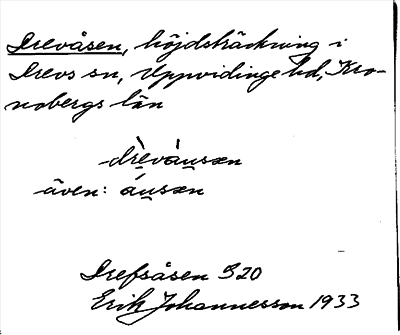 Drevåsen, höjdsträckning i
Drevs sn, Uppvidinge hd, Kro-
nobergs län
drè̠vàu̠sæn
även: áu̠sæn
Drefsåsen S20
Erik Johannesson 1933